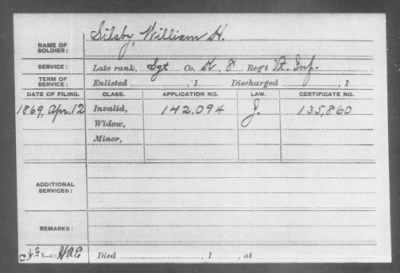 NAME OF SOLDIER: Silsby, William H.
SERVICE: Late rank, Sgt Co. K, 8 Reg't Vt. Inf.
TERM OF SERVICE: Enlisted , 1 Discharged , 1
DATE OF FILING. CLASS. APPLICATION NO. LAW. CERTIFICATE NO.
1869, Apr. 12 Invalid, 142,094 J. 135,860
Widow,
Minor,
ADDITIONAL SERVICES:
REMARKS:
Died , 1 , at